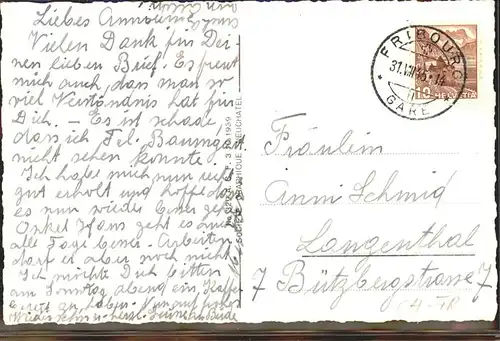 Liebes Annömeie,
Vielen Dank für Dei-
nen lieben Brief. Es freut
mich auch, dass man so
viel Verständnis hat für
Dich. – Es ist schade,
dass ich Frl. Baumgart
nicht sehen konnte.
Ich habe mich nun recht
gut erholt und hoffe dass
es nun wieder besser geht.
Onkel Hans geht es auch
alle Tage besser. Arbeiten
darf er aber noch nicht.
Ich möchte Dich bitten
am Sonntag abend ein
zu haben. Nun auf frohes
Wiedersehn u. herzl. Grüsse an Beide
1939
NEUCHATEL
FRIBOURG
GARE
10 HELVETIA
Fräulein
Anni Schmid
Langenthal
7 Bützbergstrasse 7
CH-FR